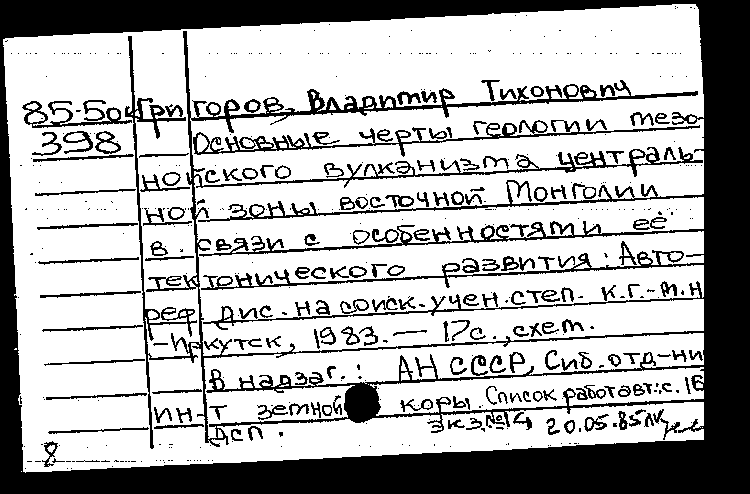 85-5он Григоров, Владимир Тихонович
398 Основные черты геологии мезо-
нойского вулканизма централь-
ной зоны восточной Монголии
в связи с особенностями её
тектонического развития: Авто-
реф. дис. на соиск. учен. степ. к.г.-м.н
-Иркутск, 1983. — 17с., схем.
В надзаг.: АН СССР, Сиб. отд-ни
ин-т земной коры. Список работ авт.: с. 16
ДСП. экз №14 20.05.85
8